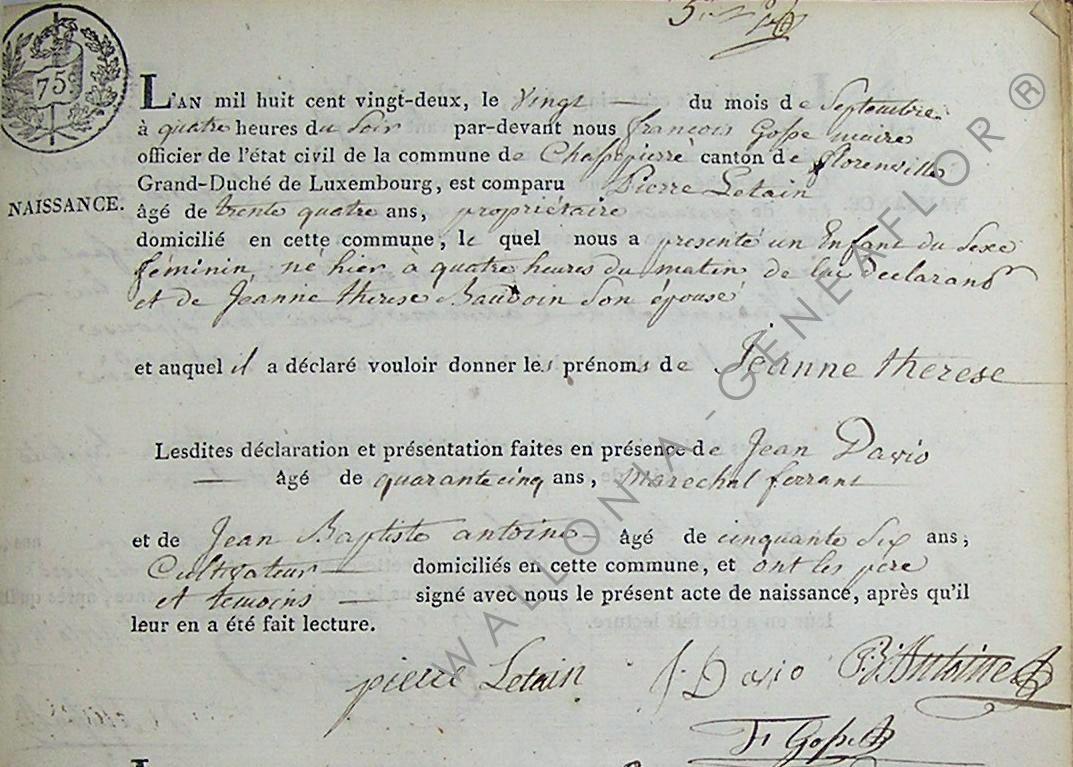 75c
NAISSANCE.
L'AN mil huit cent vingt-deux, le Vingt du mois de Septembre
à quatre heures du Soir par-devant nous françois Gosse maire
officier de l'état civil de la commune de Chassepierre canton de florenville
Grand-Duché de Luxembourg, est comparu Pierre Letain
âgé de trente quatre ans, propriétaire
domicilié en cette commune, le quel nous a presenté un Enfant du Sexe
féminin, né hier à quatre heures du matin de lui Declarant
et de Jeanne therese Baudoin Son épouse
et auquel il a déclaré vouloir donner les prénoms de Jeanne therese
Lesdites déclaration et présentation faites en présence de Jean Davio
— âgé de quarante cinq ans, marechal ferrant
et de Jean Baptiste antoine — âgé de cinquante Six ans,
Cultivateur — domiciliés en cette commune, et ont les pere
et temoins — signé avec nous le présent acte de naissance, après qu'il
leur en a été fait lecture.
pierre Letain J. Davio J.B. Antoine
F. Gosse
WALLONIA - GENEAFLOR ®